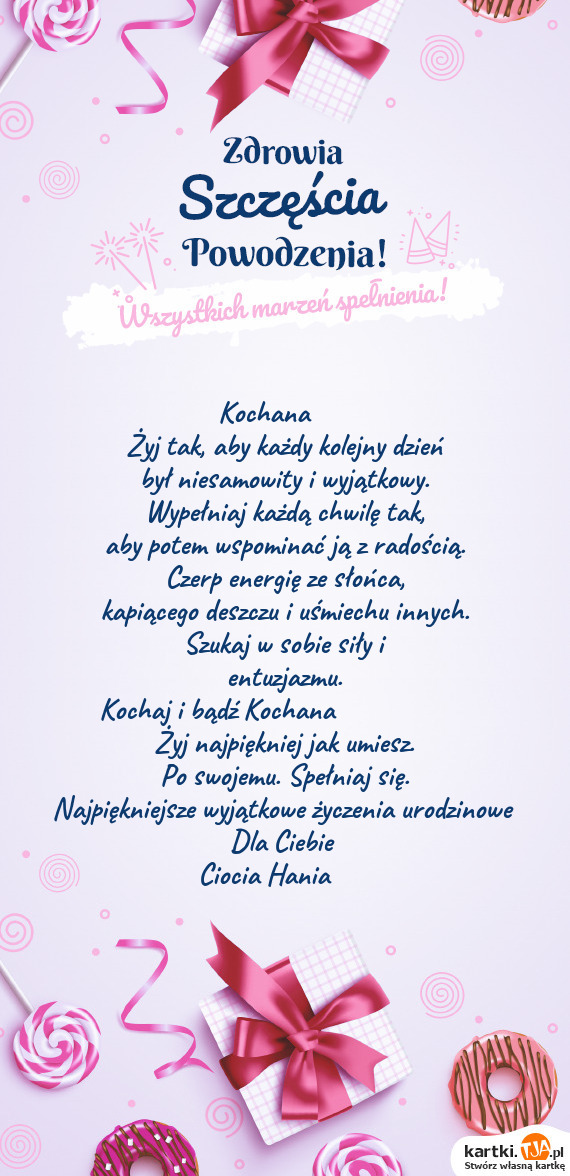 Zdrowia
Szczęścia
Powodzenia!
Wszystkich marzeń spełnienia!
Kochana
Żyj tak, aby każdy kolejny dzień
był niesamowity i wyjątkowy.
Wypełniaj każdą chwilę tak,
aby potem wspominać ją z radością.
Czerp energię ze słońca,
kapiącego deszczu i uśmiechu innych.
Szukaj w sobie siły i
entuzjazmu.
Kochaj i bądź Kochana
Żyj najpiękniej jak umiesz.
Po swojemu. Spełniaj się.
Najpiękniejsze wyjątkowe życzenia urodzinowe
Dla Ciebie
Ciocia Hania
kartki.TJA.pl
Stwórz własną kartkę